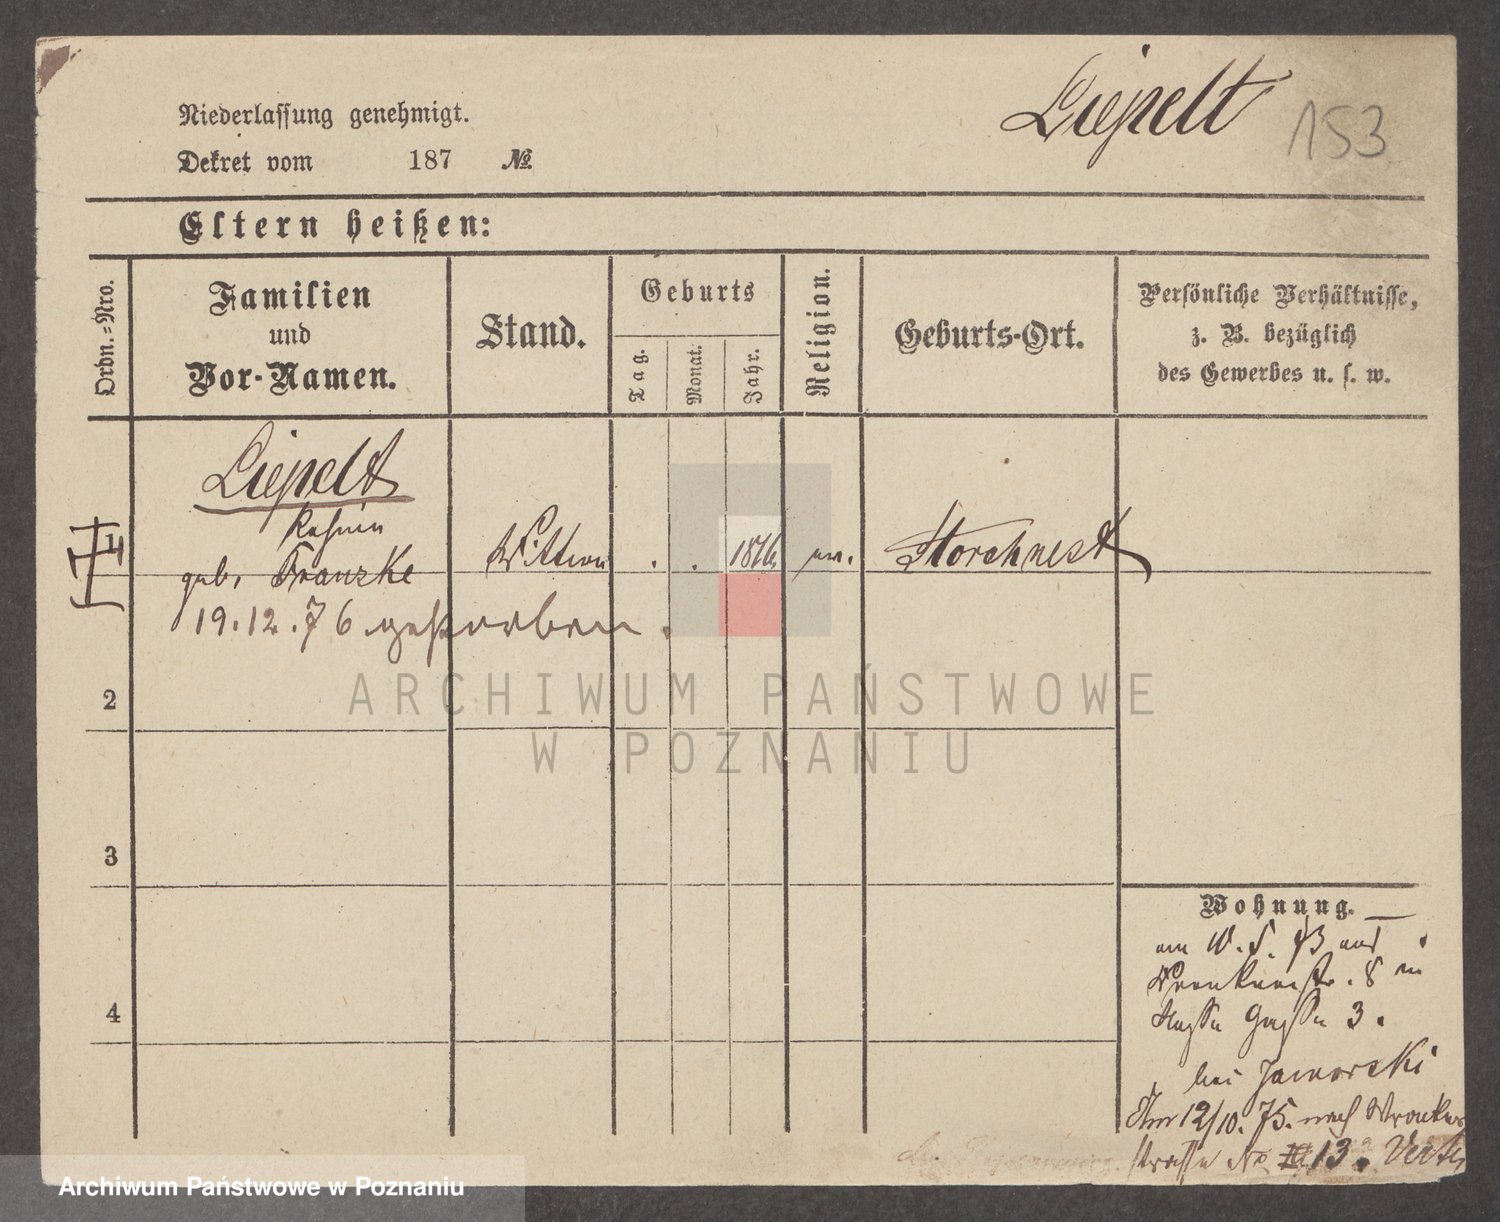 Liepelt 153
Niederlassung genehmigt.
Dekret vom 187 №
Eltern heißen:
Ordn.=Nro.
Familien
und
Vor-Namen.
Stand.
Geburts
Tag.
Monat.
Jahr.
Religion.
Geburts-Ort.
Persönliche Verhältnisse,
z. B. bezüglich
des Gewerbes u. s. w.
Liepelt
geb. Franzke Wittwe . . 1816 ev. Storchnest
19.12.76 gestorben.
2
ARCHIWUM PAŃSTWOWE
W POZNANIU
3
4
Wohnung.
am 10. 5. 73 aus
8 in
3.
bei Jaworski
Am 12/10. 75. nach Wronker
strasse No 13.
Archiwum Państwowe w Poznaniu